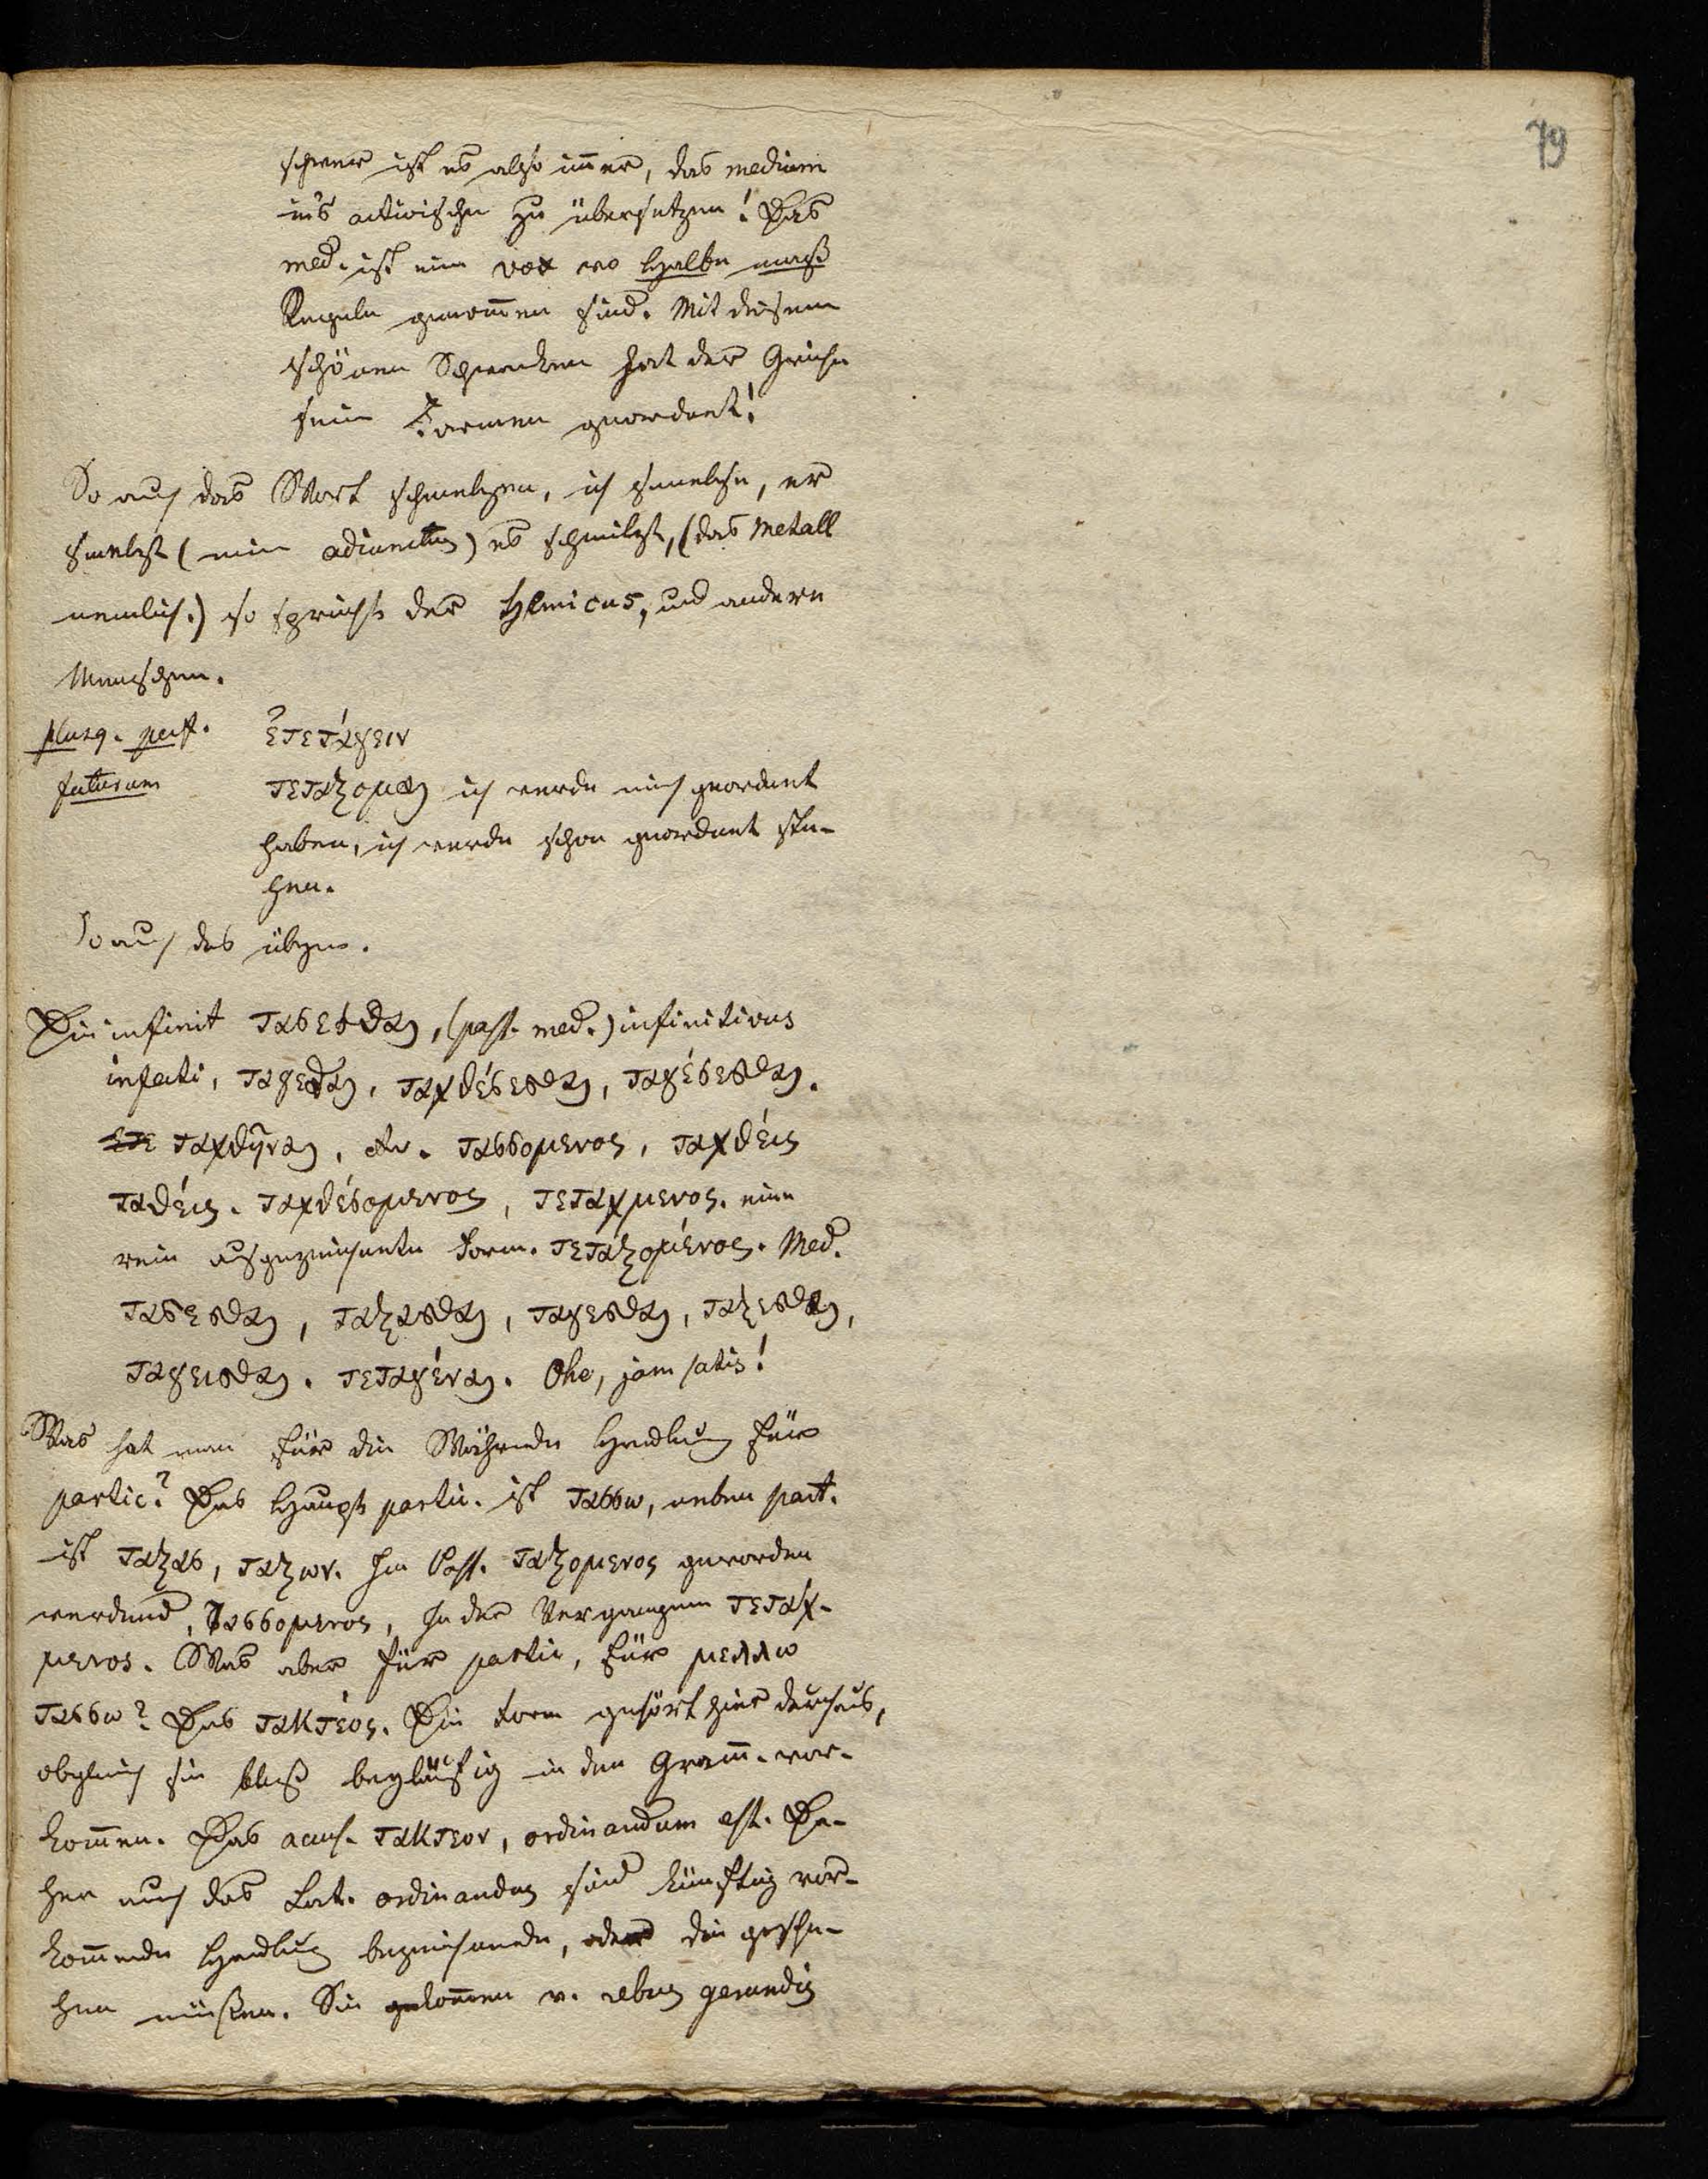 79
schwer ist es also im̄er, das medium
in's activische zu übersetzen! Das
med. ist eine vox wo halbe maß
Regeln genom̄en sind. Mit diesem
schönen Schwenken hat der Grieche
seine Formen geordnet!
So auch das Wort schmelzen, ich schmelze, er
schmelzt (ein adiunctum) es schmilzt, (das Metall
nemlich.) so spricht der Chemicus, und andere
Menschen.
plusq. perf. ἐτετάγειν
futurum τεταξομαι ich werde mich geordnet
haben, ich werde schon geordnet ste-
hen.
So auch das übrige.
Die infinit τασεσθαι, (pass. med.) infinitivus
infecti, ταγεσθαι, ταχθέσεσθαι, ταγέσεσθαι.
ετε ταχθῆναι, etc. τασσομενος, ταχθείς
ταθείς. ταχθέσομενος, τεταχμενος. eine
rein ausgezeichnete Form. τεταξομένος. Med.
τασεσθαι, ταξασθαι, ταγεσθαι, ταξεσθαι,
ταγεισθαι. τεταγέναι. Ohe, jam satis!
Was hat man für die Während Handlung für
partic? Das Haupt partic. ist τασσω, neben part.
ist ταξας, ταξων. Im Pass. ταξομενος geworden
werdend, τασσομενος, In der Vergangen τεταχ-
μενος. Was aber für partic, für μελλω
τασσω? Das τακτέος. Die Form gehört hier durchaus,
obgleich sie bloß beyläufig in den Gram̄. vor-
kom̄en. Das accus. τακτεον, ordinandum est. Da-
her auch das Lat. ordinandus sind künftig vor-
kom̄ende Handlung bezeichnende, oder die gesche-
hen müssen. Sie kom̄en v. rebus gerundis